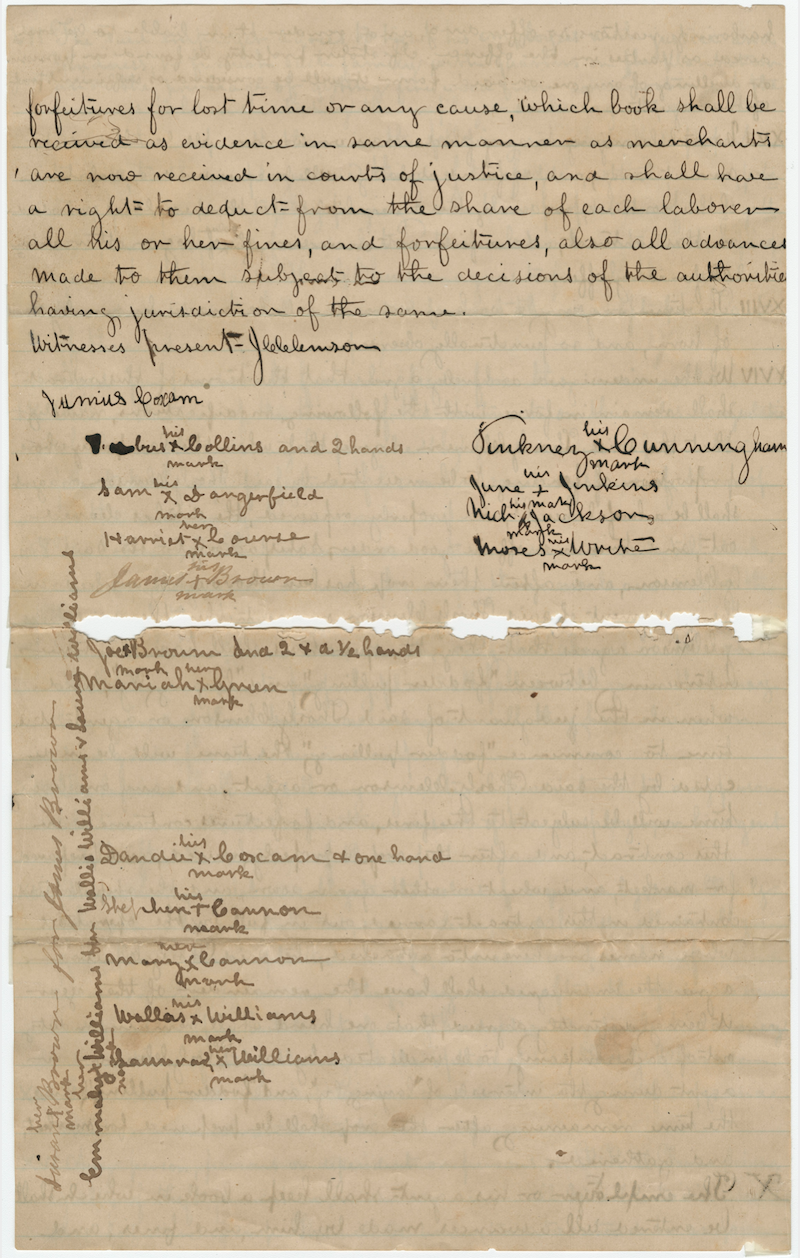 forfeitures for lost time or any cause, which book shall be
received as evidence in same manner as merchants
are now received in courts of justice, and shall have
a right to deduct from the share of each laborer
all his or her fines, and forfeitures, also all advances
made to them subject to the decisions of the authoritie
having jurisdiction of the same.
Witnesses present
Junius Coxam
his
x Collins and 2 hands
mark
his
Sam x Dangerfield
mark
her
Harriet x Course
mark
his
James + Brown
mark
his
Pinkney x Cunningham
mark
his
June + Jinkins
his mark
Nick Jackson
mark
his
Moses x Write
mark
Joe Brown and 2 & a 1/2 hands
mark her
Mariah x Green
mark
his
Dandie x Coxcam & one hand
mark
his
Stephen + Cannon
mark
her
Mary x Cannon
mark
his
Wallas x Williams
mark
her
x Williams
mark
her
Susan + Brown for James Brown
mark
her
Emmaly x Williams for Wallis Williams &  Williams
mark